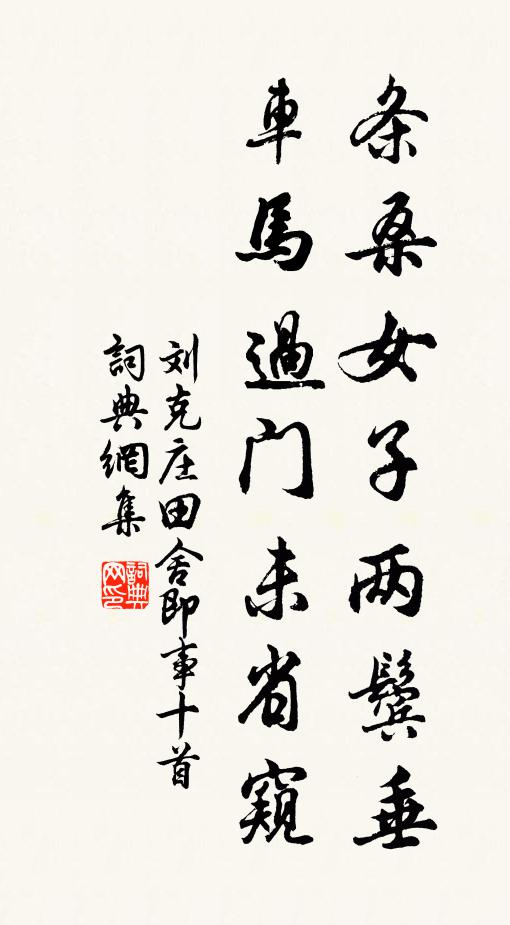 条桑女子两鬓垂
車馬過门未省窺
刘克庄田舍即事十首
詞典網集
詞典
网印